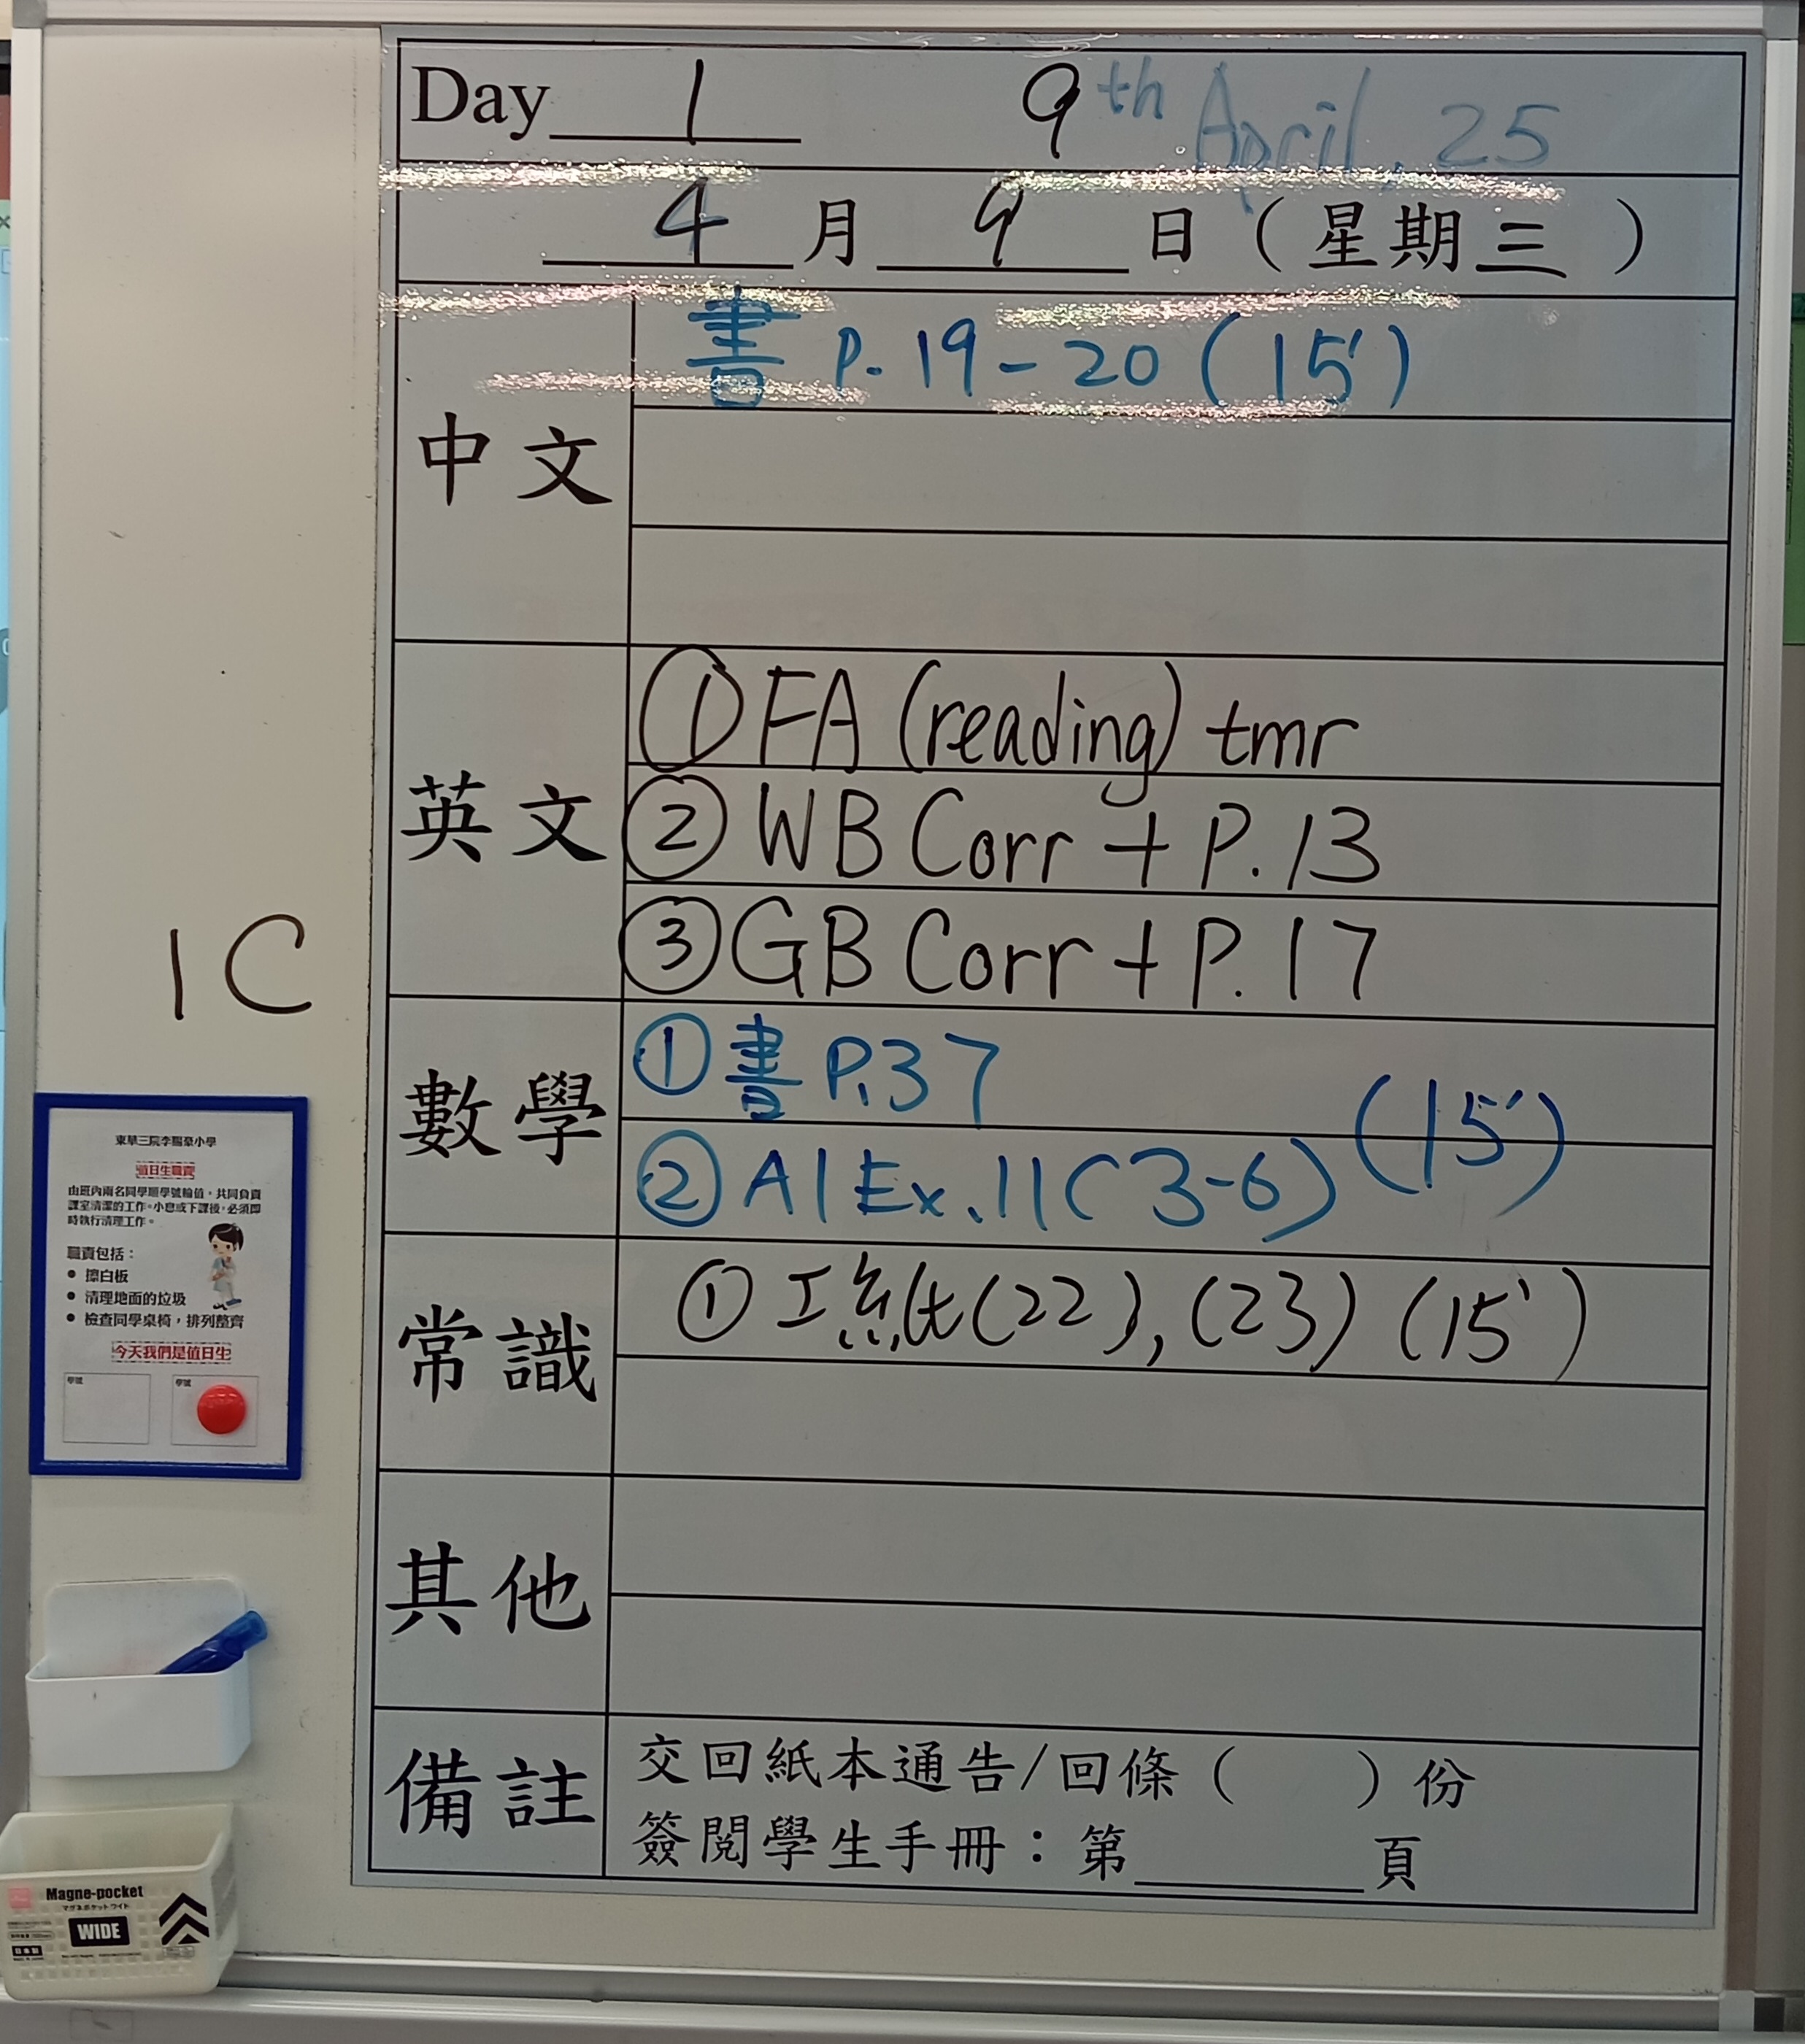 Day 1 9th April, 25
4 月 9 日 ( 星期三 )
中文
書 P. 19-20 (15')
英文
① FA (reading) tmr
② WB Corr + P. 13
③ GB Corr + P. 17
數學
① 書 P.37
② A1 Ex. 11 (3-6) (15')
常識
① 工紙(22), (23) (15')
其他
備註
交回紙本通告/回條 ( ) 份
簽閱學生手冊：第 頁
1C
值日生職責
由班內兩名同學順學號輪值，共同負責
課室清潔的工作。小息或下課後，必須即
時執行清理工作。
職責包括：
• 擦白板
• 清理地面的垃圾
• 檢查同學桌椅，排列整齊
今天我們是值日生
學號 學號
Magne-pocket
マグネポケット ワイド
WIDE
日本製